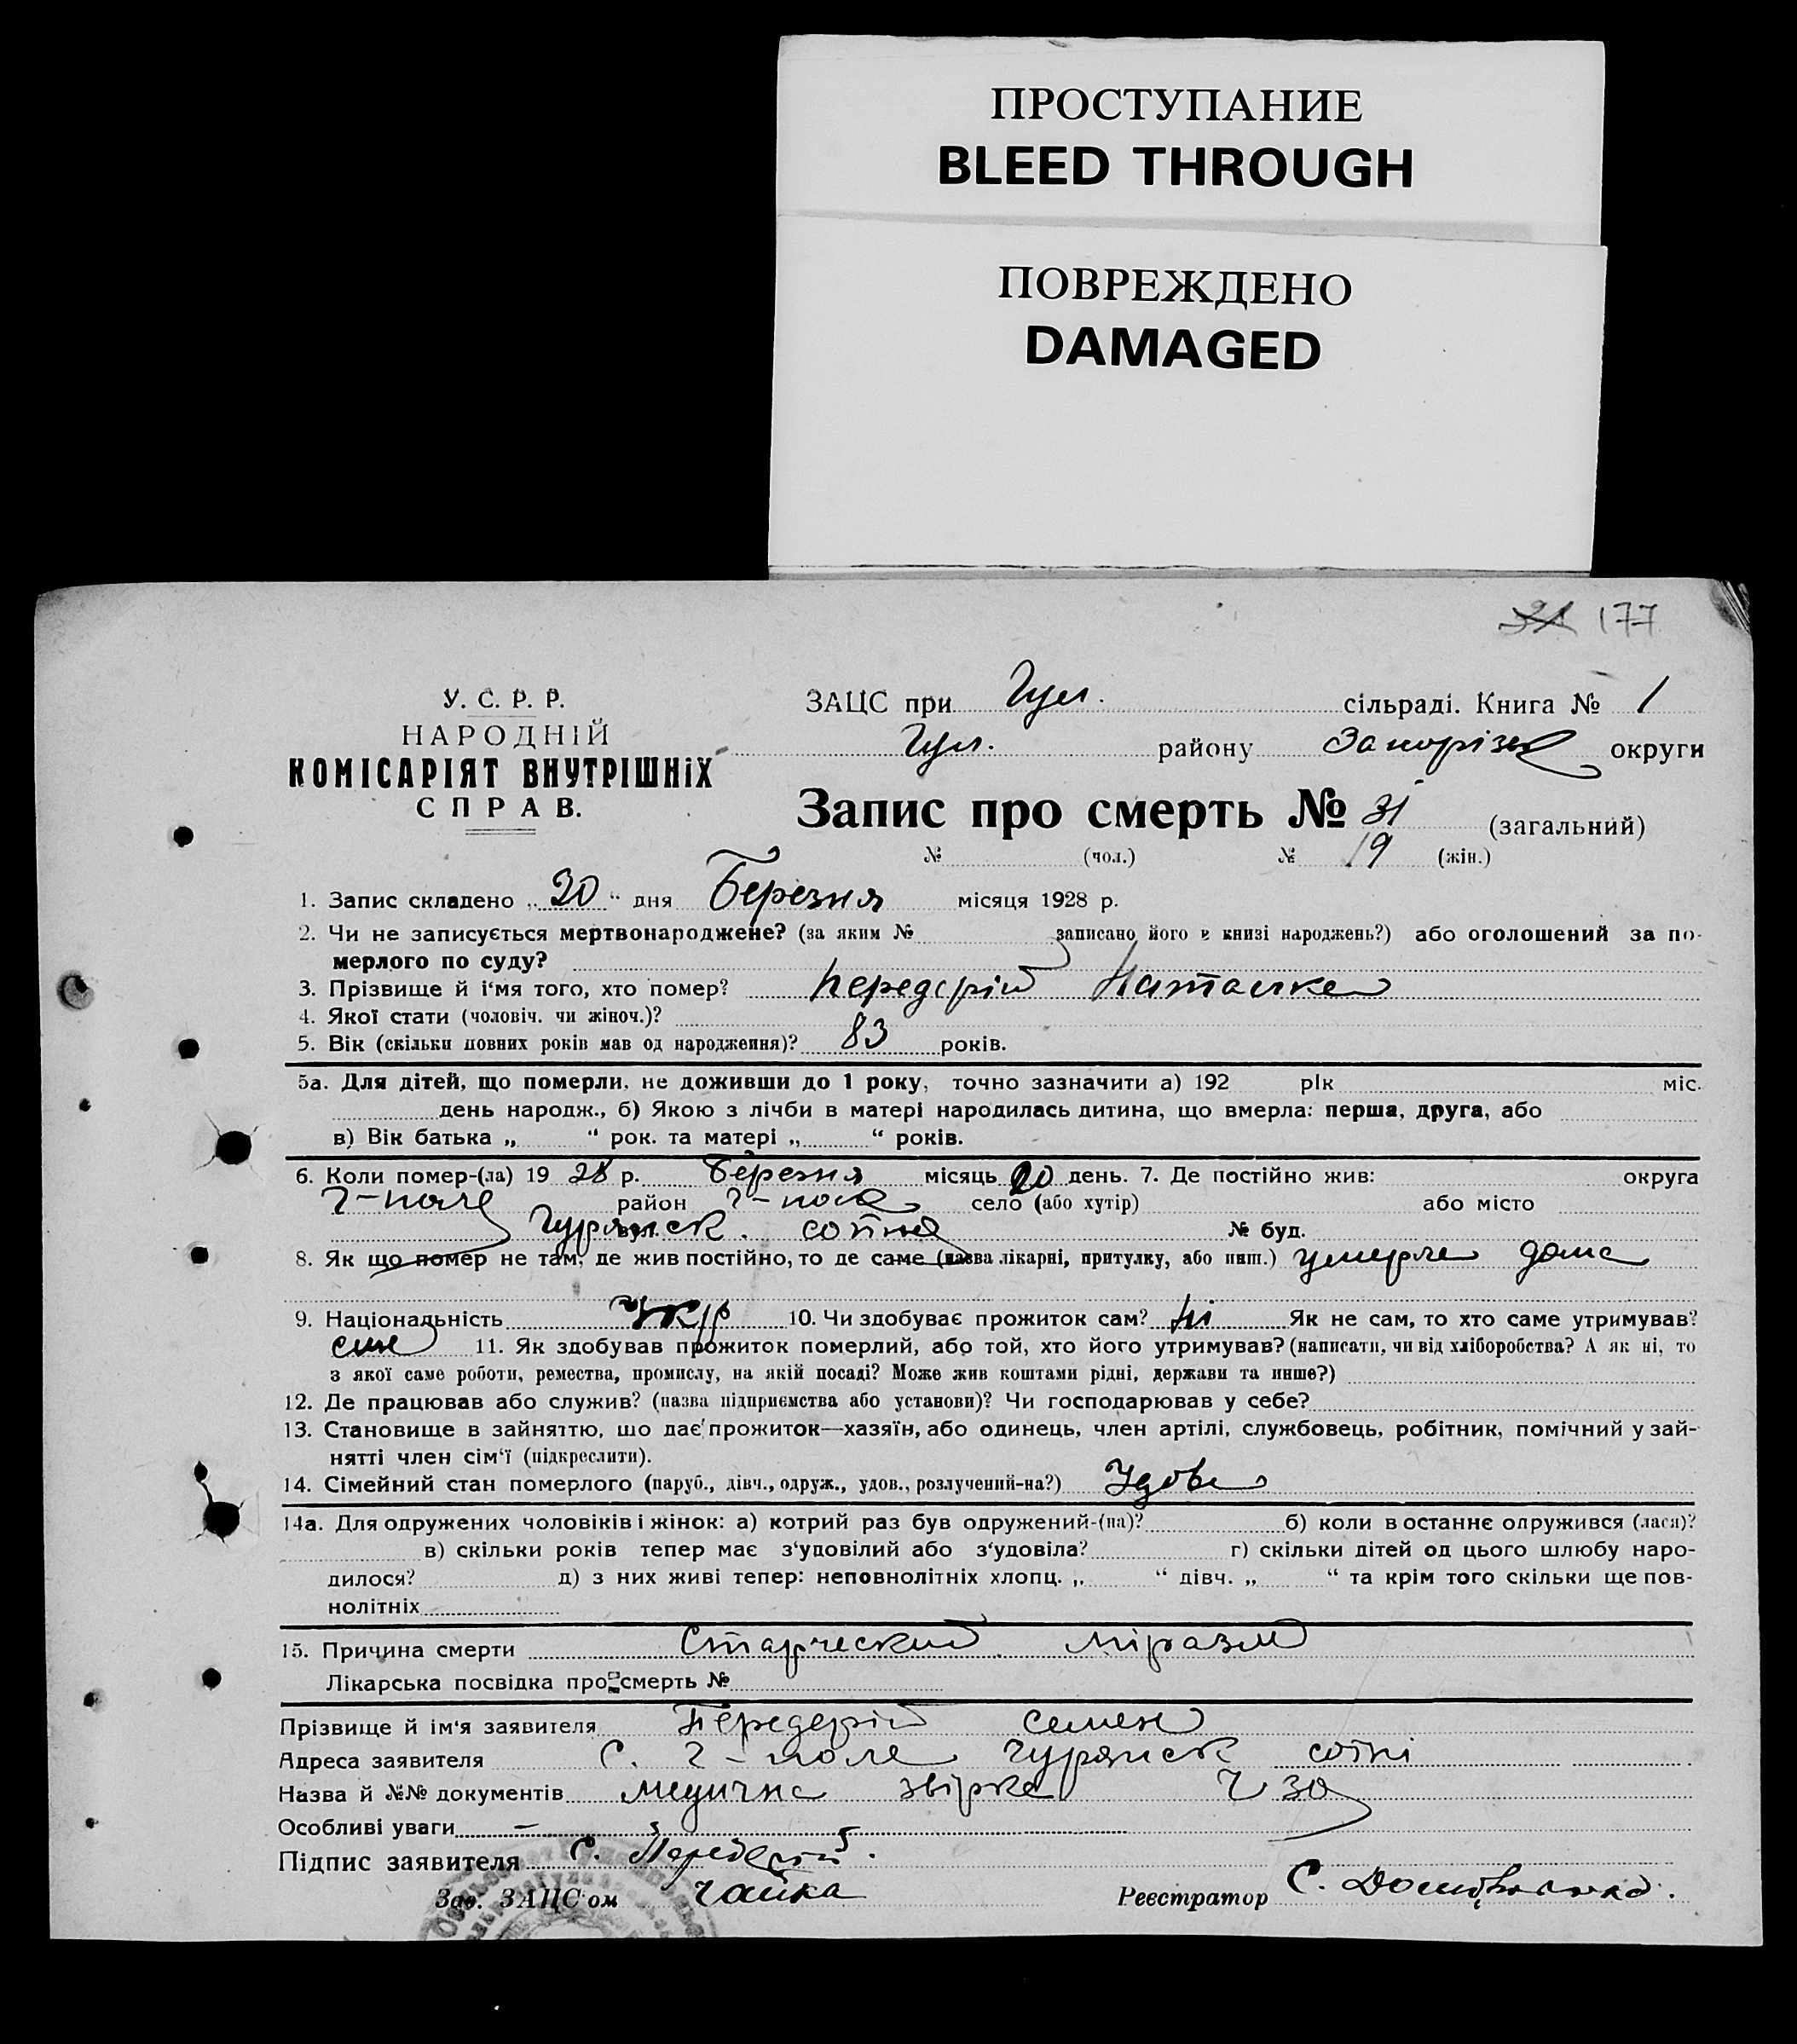 ПРОСТУПАНИЕ
BLEED THROUGH
ПОВРЕЖДЕНО
DAMAGED
31 177
У. С. Р. Р.
НАРОДНІЙ
КОМІСАРІЯТ ВНУТРІШНіХ
СПРАВ.
ЗАЦС при Гул. сільраді. Книга № 1
Гул. району Запорізьк округи
Запис про смерть № 31 (загальний)
№ (чол.) № 19 (жін.)
1. Запис складено „ 20 “ дня Березня місяця 1928 р.
2. Чи не записується мертвонароджене? (за яким № записано його в книзі народжень?) або оголошений за по-
мерлого по суду?
3. Прізвище й і‘мя того, хто помер? Передерій Наталка
4. Якої стати (чоловіч. чи жіноч.)?
5. Вік (скільки повних років мав од народження)? 83 років.
5а. Для дітей, що померли, не доживши до 1 року, точно зазначити а) 192 рік міс.
день народж., б) Якою з лічби в матері народилась дитина, що вмерла: перша, друга, або
в) Вік батька „ “ рок. та матері „ “ років.
6. Коли помер-(ла) 19 28 р. Березня місяць 20 день. 7. Де постійно жив: округа
Г-поле район Г-поле село (або хутір) або місто
вул. Гурянск. сотня № буд.
8. Як що помер не там, де жив постійно, то де саме (назва лікарні, притулку, або инш.) умерла дома
9. Національність Укр 10. Чи здобуває прожиток сам? Ні Як не сам, то хто саме утримував?
син 11. Як здобував прожиток померлий, або той, хто його утримував? (написати, чи від хліборобства? А як ні, то
з якої саме роботи, ремества, промислу, на якій посаді? Може жив коштами рідні, держави та инше?)
12. Де працював або служив? (назва підприємства або установи)? Чи господарював у себе?
13. Становище в зайняттю, що дає прожиток—хазяїн, або одинець, член артілі, службовець, робітник, помічний у зай-
нятті член сім‘ї (підкреслити).
14. Сімейний стан померлого (паруб., дівч., одруж., удов., розлучений-на?) Удова
14а. Для одружених чоловіків і жінок: а) котрий раз був одружений-(на)? б) коли в останнє одружився (лася)?
в) скільки років тепер має з‘удовілий або з‘удовіла? г) скільки дітей од цього шлюбу наро-
дилося? д) з них живі тепер: неповнолітніх хлопц. „ “ дівч. „ “ та крім того скільки ще пов-
нолітніх
15. Причина смерти Старческий міразм
Лікарська посвідка про смерть №
Прізвище й ім‘я заявителя Передерій Семен
Адреса заявителя С. Г-поле Гурянск сотні
Назва й №№ документів медична звірка Ч 30
Особливі уваги —
Підпис заявителя С. Передерій.
Зав. ЗАЦС‘ом Чайка Реєстратор С.